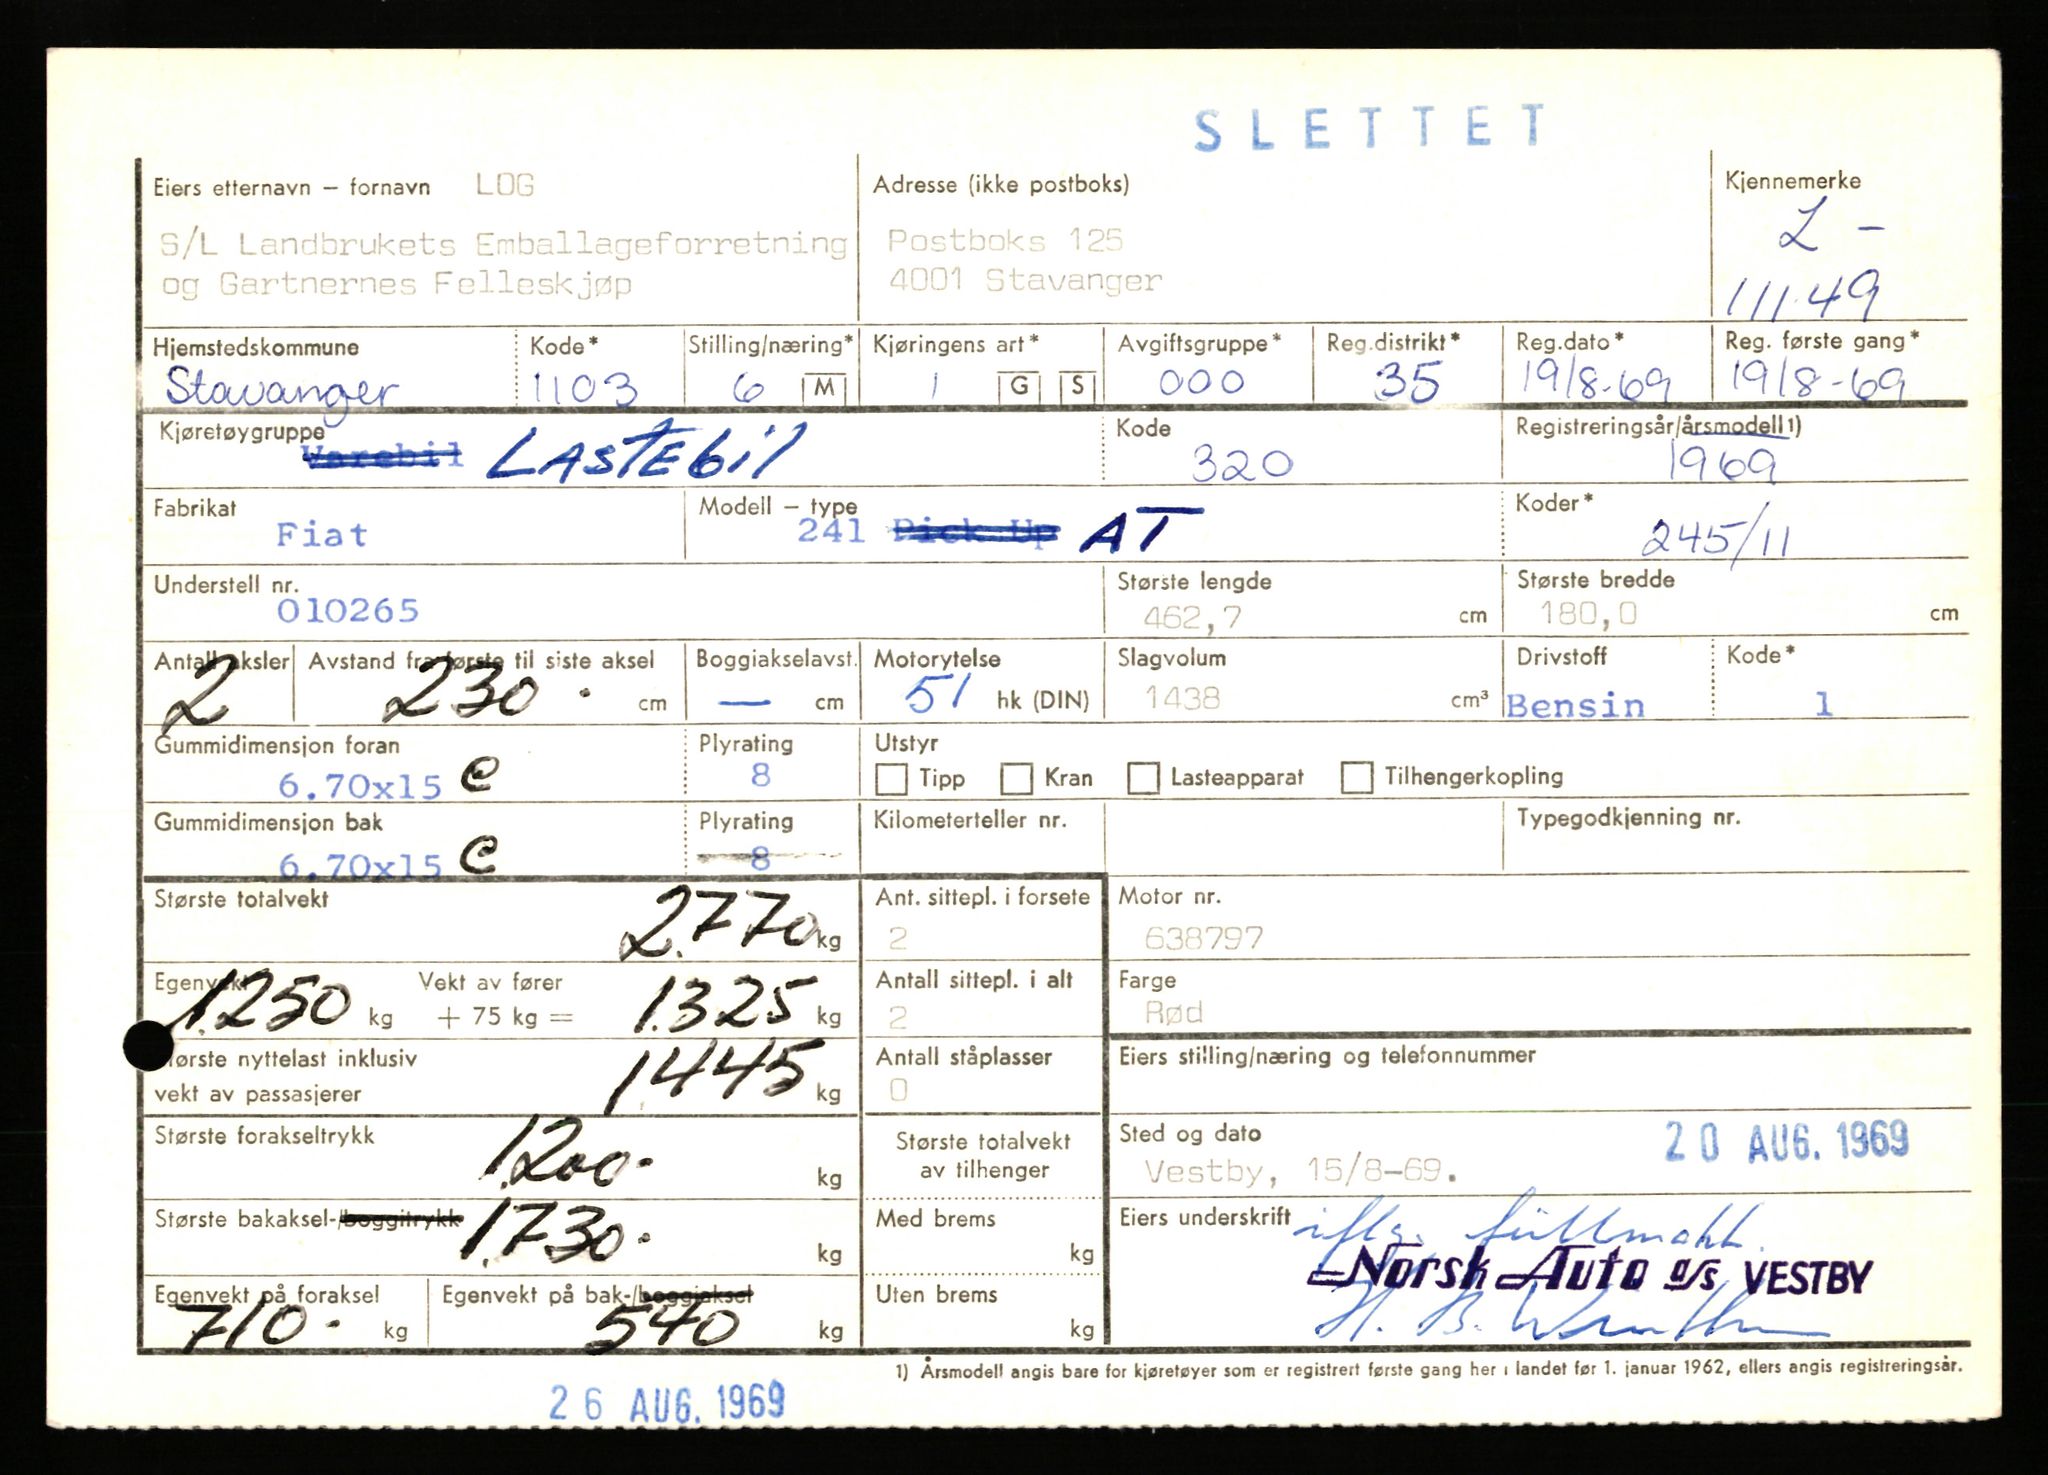 SLETTET
Eiers etternavn – fornavn LOG
S/L Landbrukets Emballageforretning
og Gartnernes Felleskjøp
Adresse (ikke postboks)
Postboks 125
4001 Stavanger
Kjennemerke
L –
11149
Hjemstedskommune
Stavanger
Kode*
1103
Stilling/næring*
6 M
Kjøringens art*
1 G S
Avgiftsgruppe*
000
Reg.distrikt*
35
Reg.dato*
19/8-69
Reg. første gang*
19/8-69
Kjøretøygruppe
Varebil LASTEbil
Kode
320
Registreringsår/årsmodell 1)
1969
Fabrikat
Fiat
Modell – type
241 Pick-Up AT
Koder*
245/11
Understell nr.
010265
Største lengde
462,7 cm
Største bredde
180,0 cm
Antall aksler
2
Avstand fra første til siste aksel
230. cm
Boggiakselavst.
— cm
Motorytelse
51 hk (DIN)
Slagvolum
1438 cm³
Drivstoff
Bensin
Kode*
1
Gummidimensjon foran
6.70x15 C
Plyrating
8
Utstyr
Tipp Kran Lasteapparat Tilhengerkopling
Gummidimensjon bak
6.70x15 C
Plyrating
8
Kilometerteller nr.
Typegodkjenning nr.
Største totalvekt
2.770 kg
Ant. sittepl. i forsete
2
Motor nr.
638797
Egenvekt
1.250 kg
Vekt av fører
+ 75 kg = 1.325 kg
Antall sittepl. i alt
2
Farge
Rød
Største nyttelast inklusiv
vekt av passasjerer
1.445 kg
Antall ståplasser
0
Eiers stilling/næring og telefonnummer
Største forakseltrykk
1.200.- kg
Største totalvekt
av tilhenger
Sted og dato
Vestby, 15/8-69.
20 AUG. 1969
Største bakaksel-/boggitrykk
1.730.- kg
Med brems
kg
Eiers underskrift
iflg. fullmakt.
Norsk Auto a/s VESTBY
Egenvekt på foraksel
710.- kg
Egenvekt på bak-/boggiaksel
540 kg
Uten brems
kg
H. B.
1) Årsmodell angis bare for kjøretøyer som er registrert første gang her i landet før 1. januar 1962, ellers angis registreringsår.
26 AUG. 1969